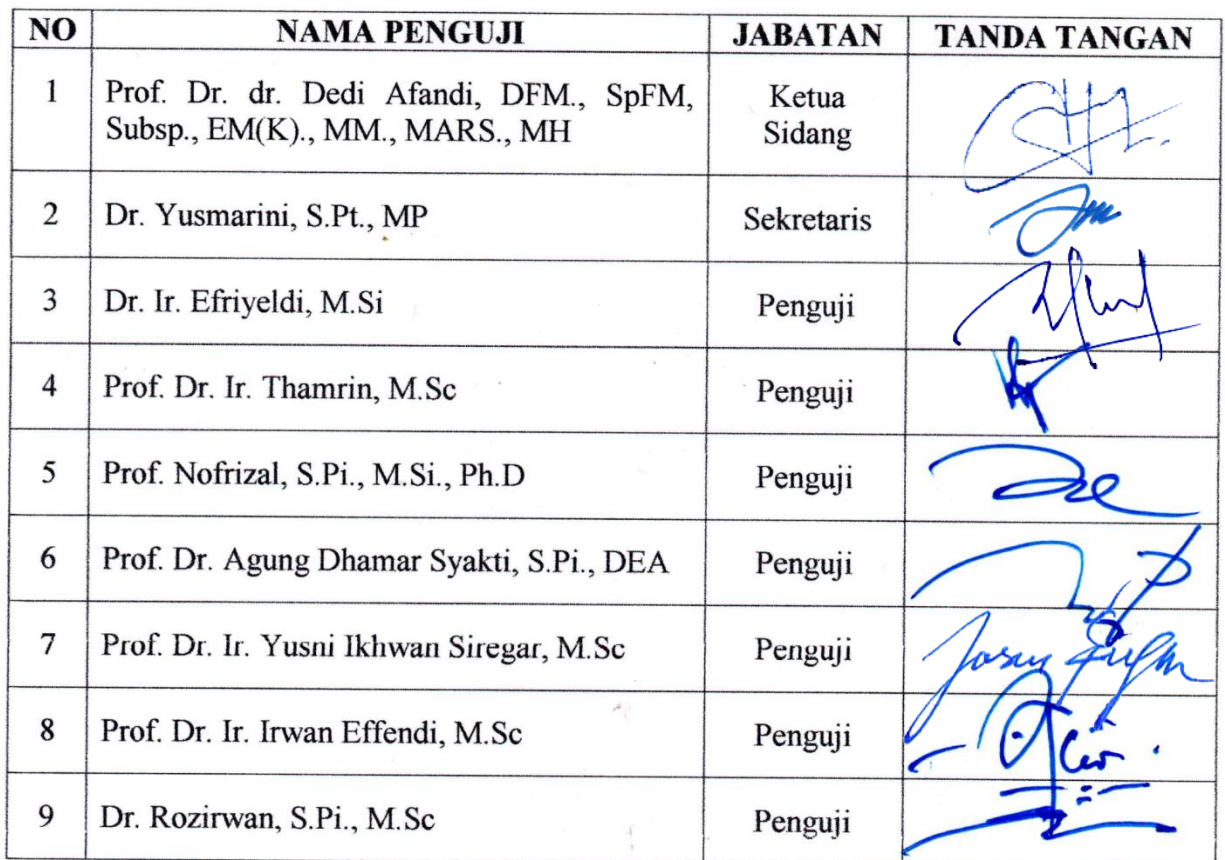 NO NAMA PENGUJI JABATAN TANDA TANGAN
1 Prof. Dr. dr. Dedi Afandi, DFM., SpFM, Ketua
Subsp., EM(K)., MM., MARS., MH Sidang
2 Dr. Yusmarini, S.Pt., MP Sekretaris
3 Dr. Ir. Efriyeldi, M.Si Penguji
4 Prof. Dr. Ir. Thamrin, M.Sc Penguji
5 Prof. Nofrizal, S.Pi., M.Si., Ph.D Penguji
6 Prof. Dr. Agung Dhamar Syakti, S.Pi., DEA Penguji
7 Prof. Dr. Ir. Yusni Ikhwan Siregar, M.Sc Penguji
8 Prof. Dr. Ir. Irwan Effendi, M.Sc Penguji
9 Dr. Rozirwan, S.Pi., M.Sc Penguji